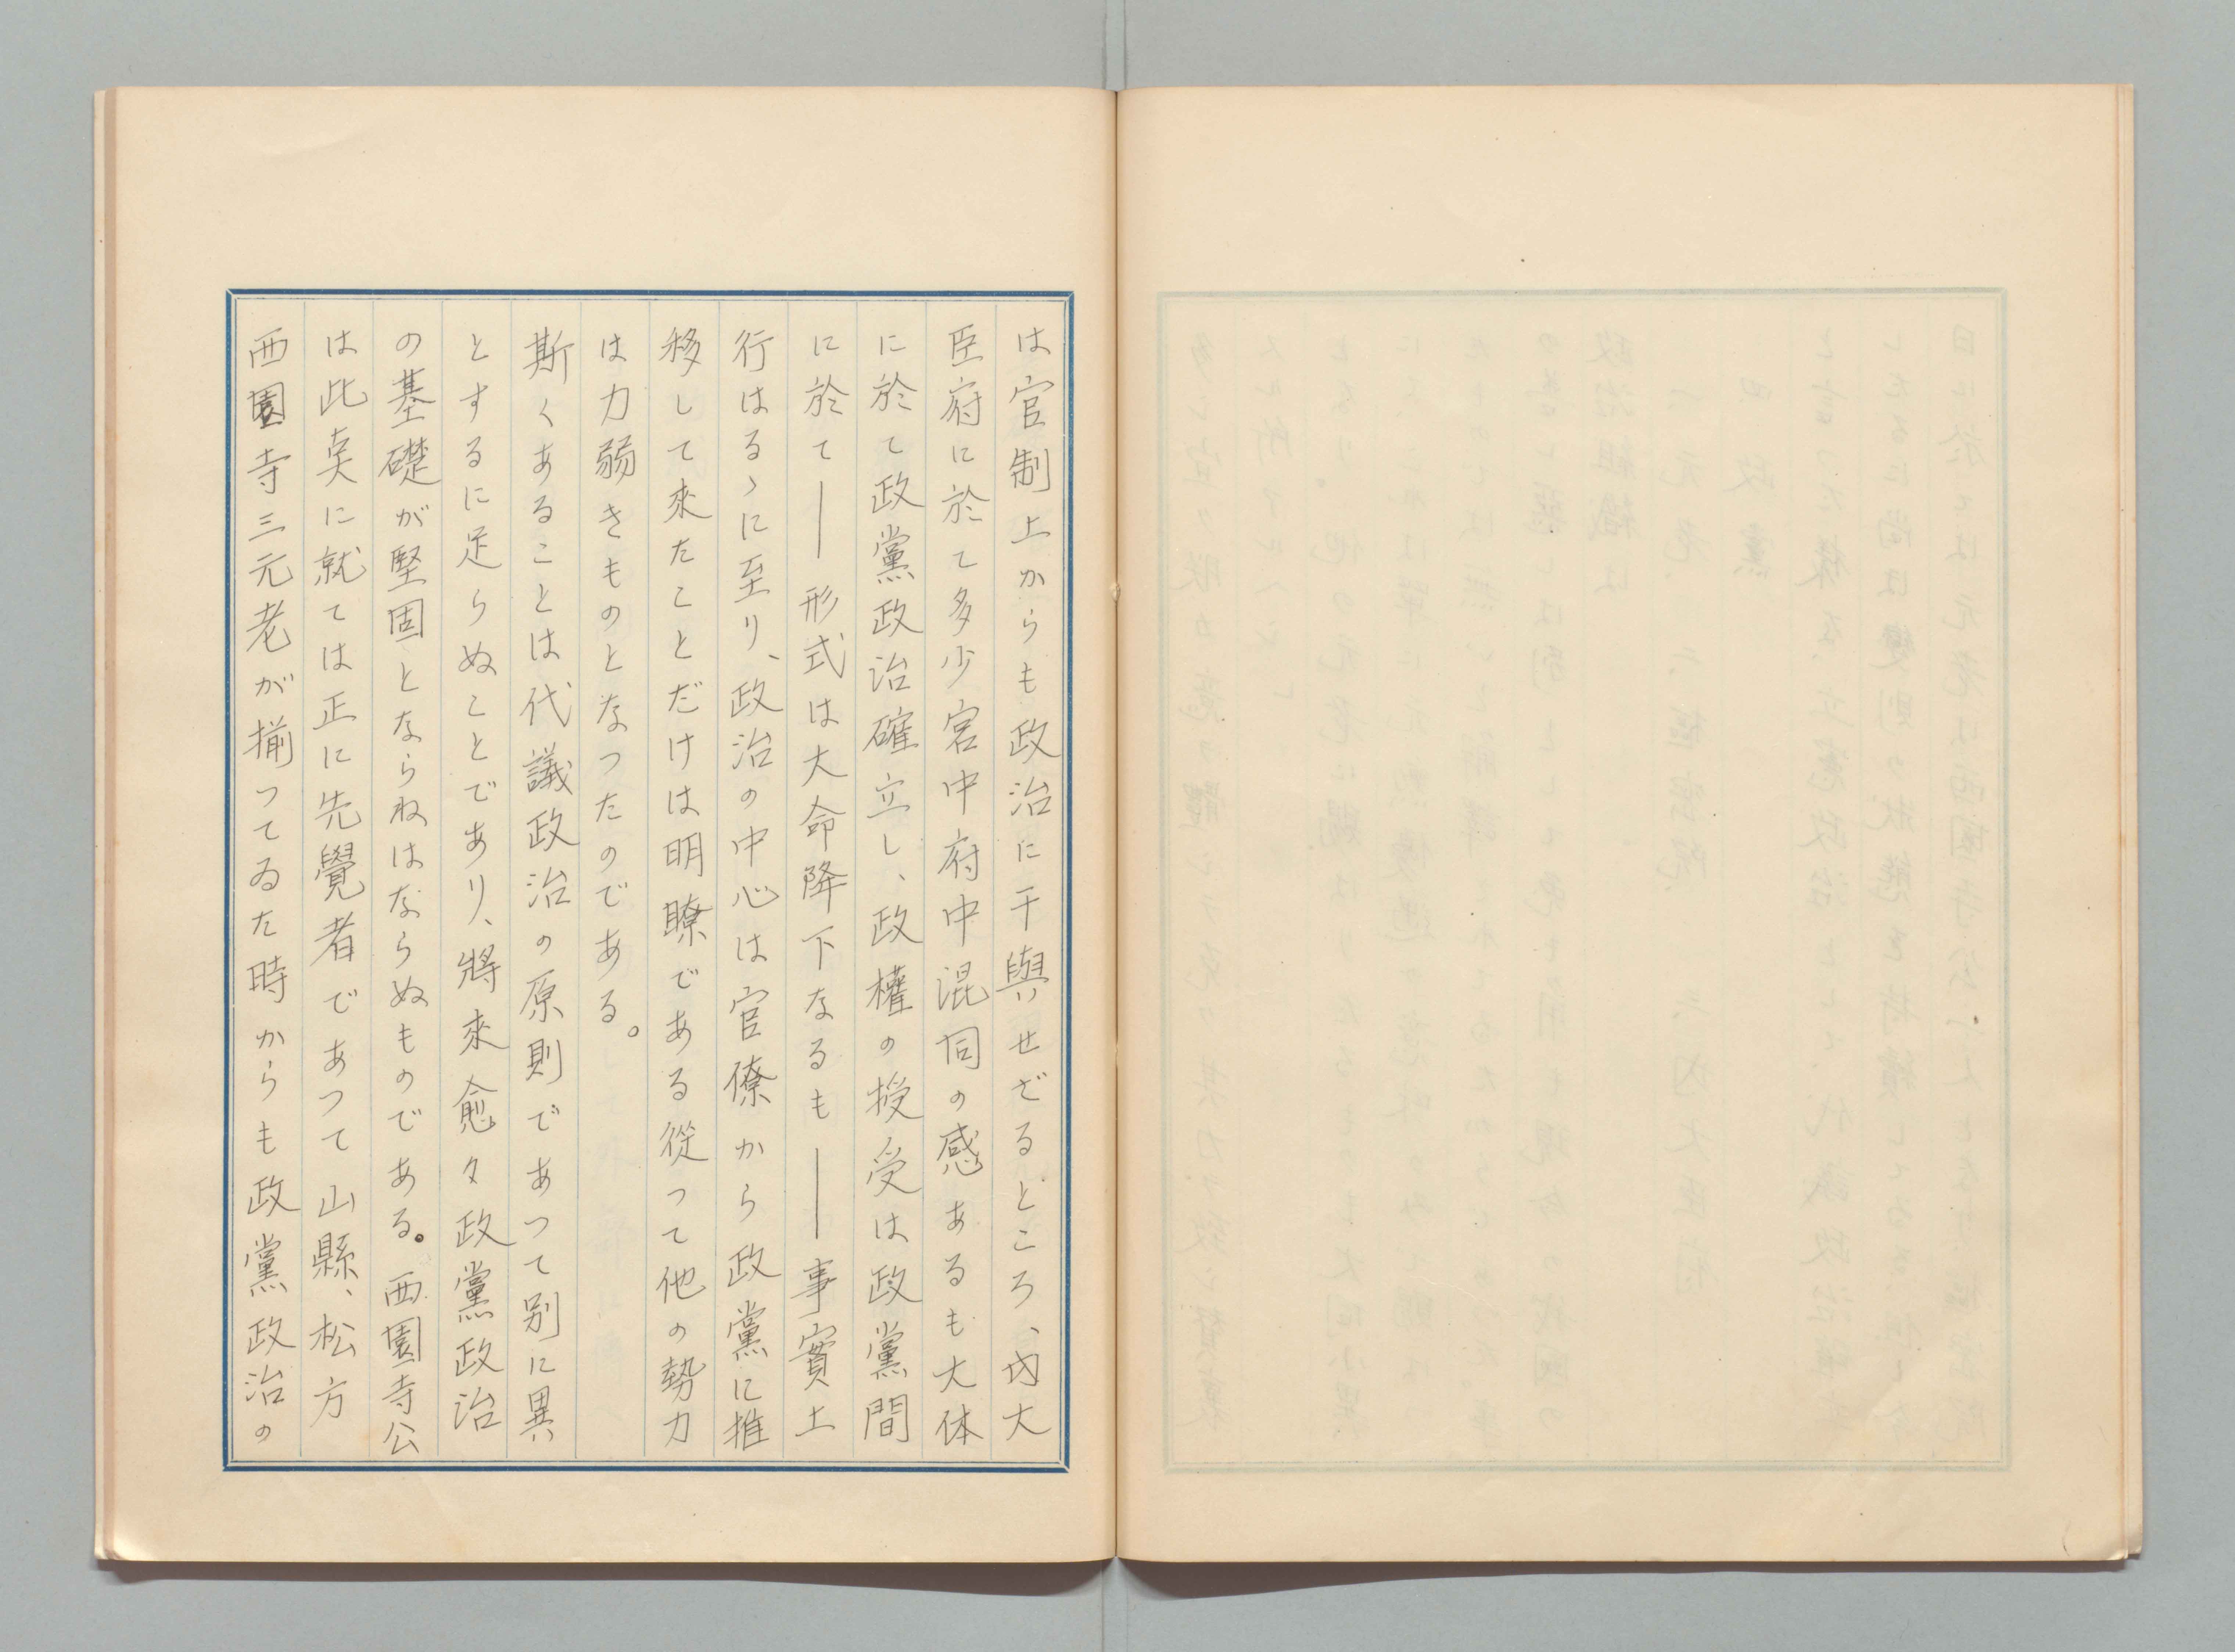 は官制上からも政治に干與せざるところ、内大
臣府に於て多少宮中府中混同の感あるも大体
に於て政黨政治確立し、政權の授受は政黨間
に於て――形式は大命降下なるも――事實上
行はるゝに至り、政治の中心は官僚から政黨に推
移して來たことだけは明瞭である從つて他の勢力
は力弱きものとなつたのである。
斯くあることは代議政治の原則であつて別に異
とするに足らぬことであり、將來愈々政黨政治
の基礎が堅固とならねはならぬものである。西園寺公
は此奌に就ては正に先覺者であつて山縣、松方
西園寺三元老が揃つてゐた時からも政黨政治の